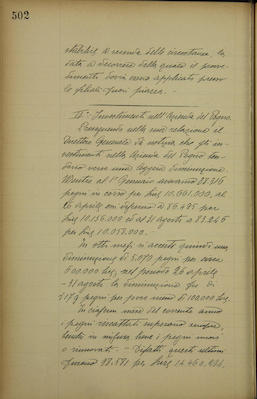 502
stabilire a seconda delle circostanze, la
data a decorrere dalla quale il provve-
dimento dovrà venire applicato presso
le filiali fuori piazza.
IV° Investimenti nell'Azienda del Pegno.
Proseguendo nella sua relazione il
Direttore Generale dà notizia che gli in-
vestimenti nella Azienda del Pegno
verso una leggera diminuzione.
Mentre al 1° Gennaio avevamo
pegni in corso per Lire 10.661.000, al
aprile si a 86.495 per
Lire 10.156.000 ed al 31 agosto a 83.246
per Lire 10.058.000.
In otto mesi si accerta quindi una
diminuzione di 5.070 pegni per circa
600.000 Lire, nel periodo 26 aprile
- 31 agosto la diminuzione fu di
3179 pegni per poco meno di 100.000 Lire.
In ciascun mese del corrente anno
i pegni riscattati superano sempre,
benché in misura lieve i pegni nuovi
o rinnovati. - Difatti questi ultimi
furono 98.871 per Lire